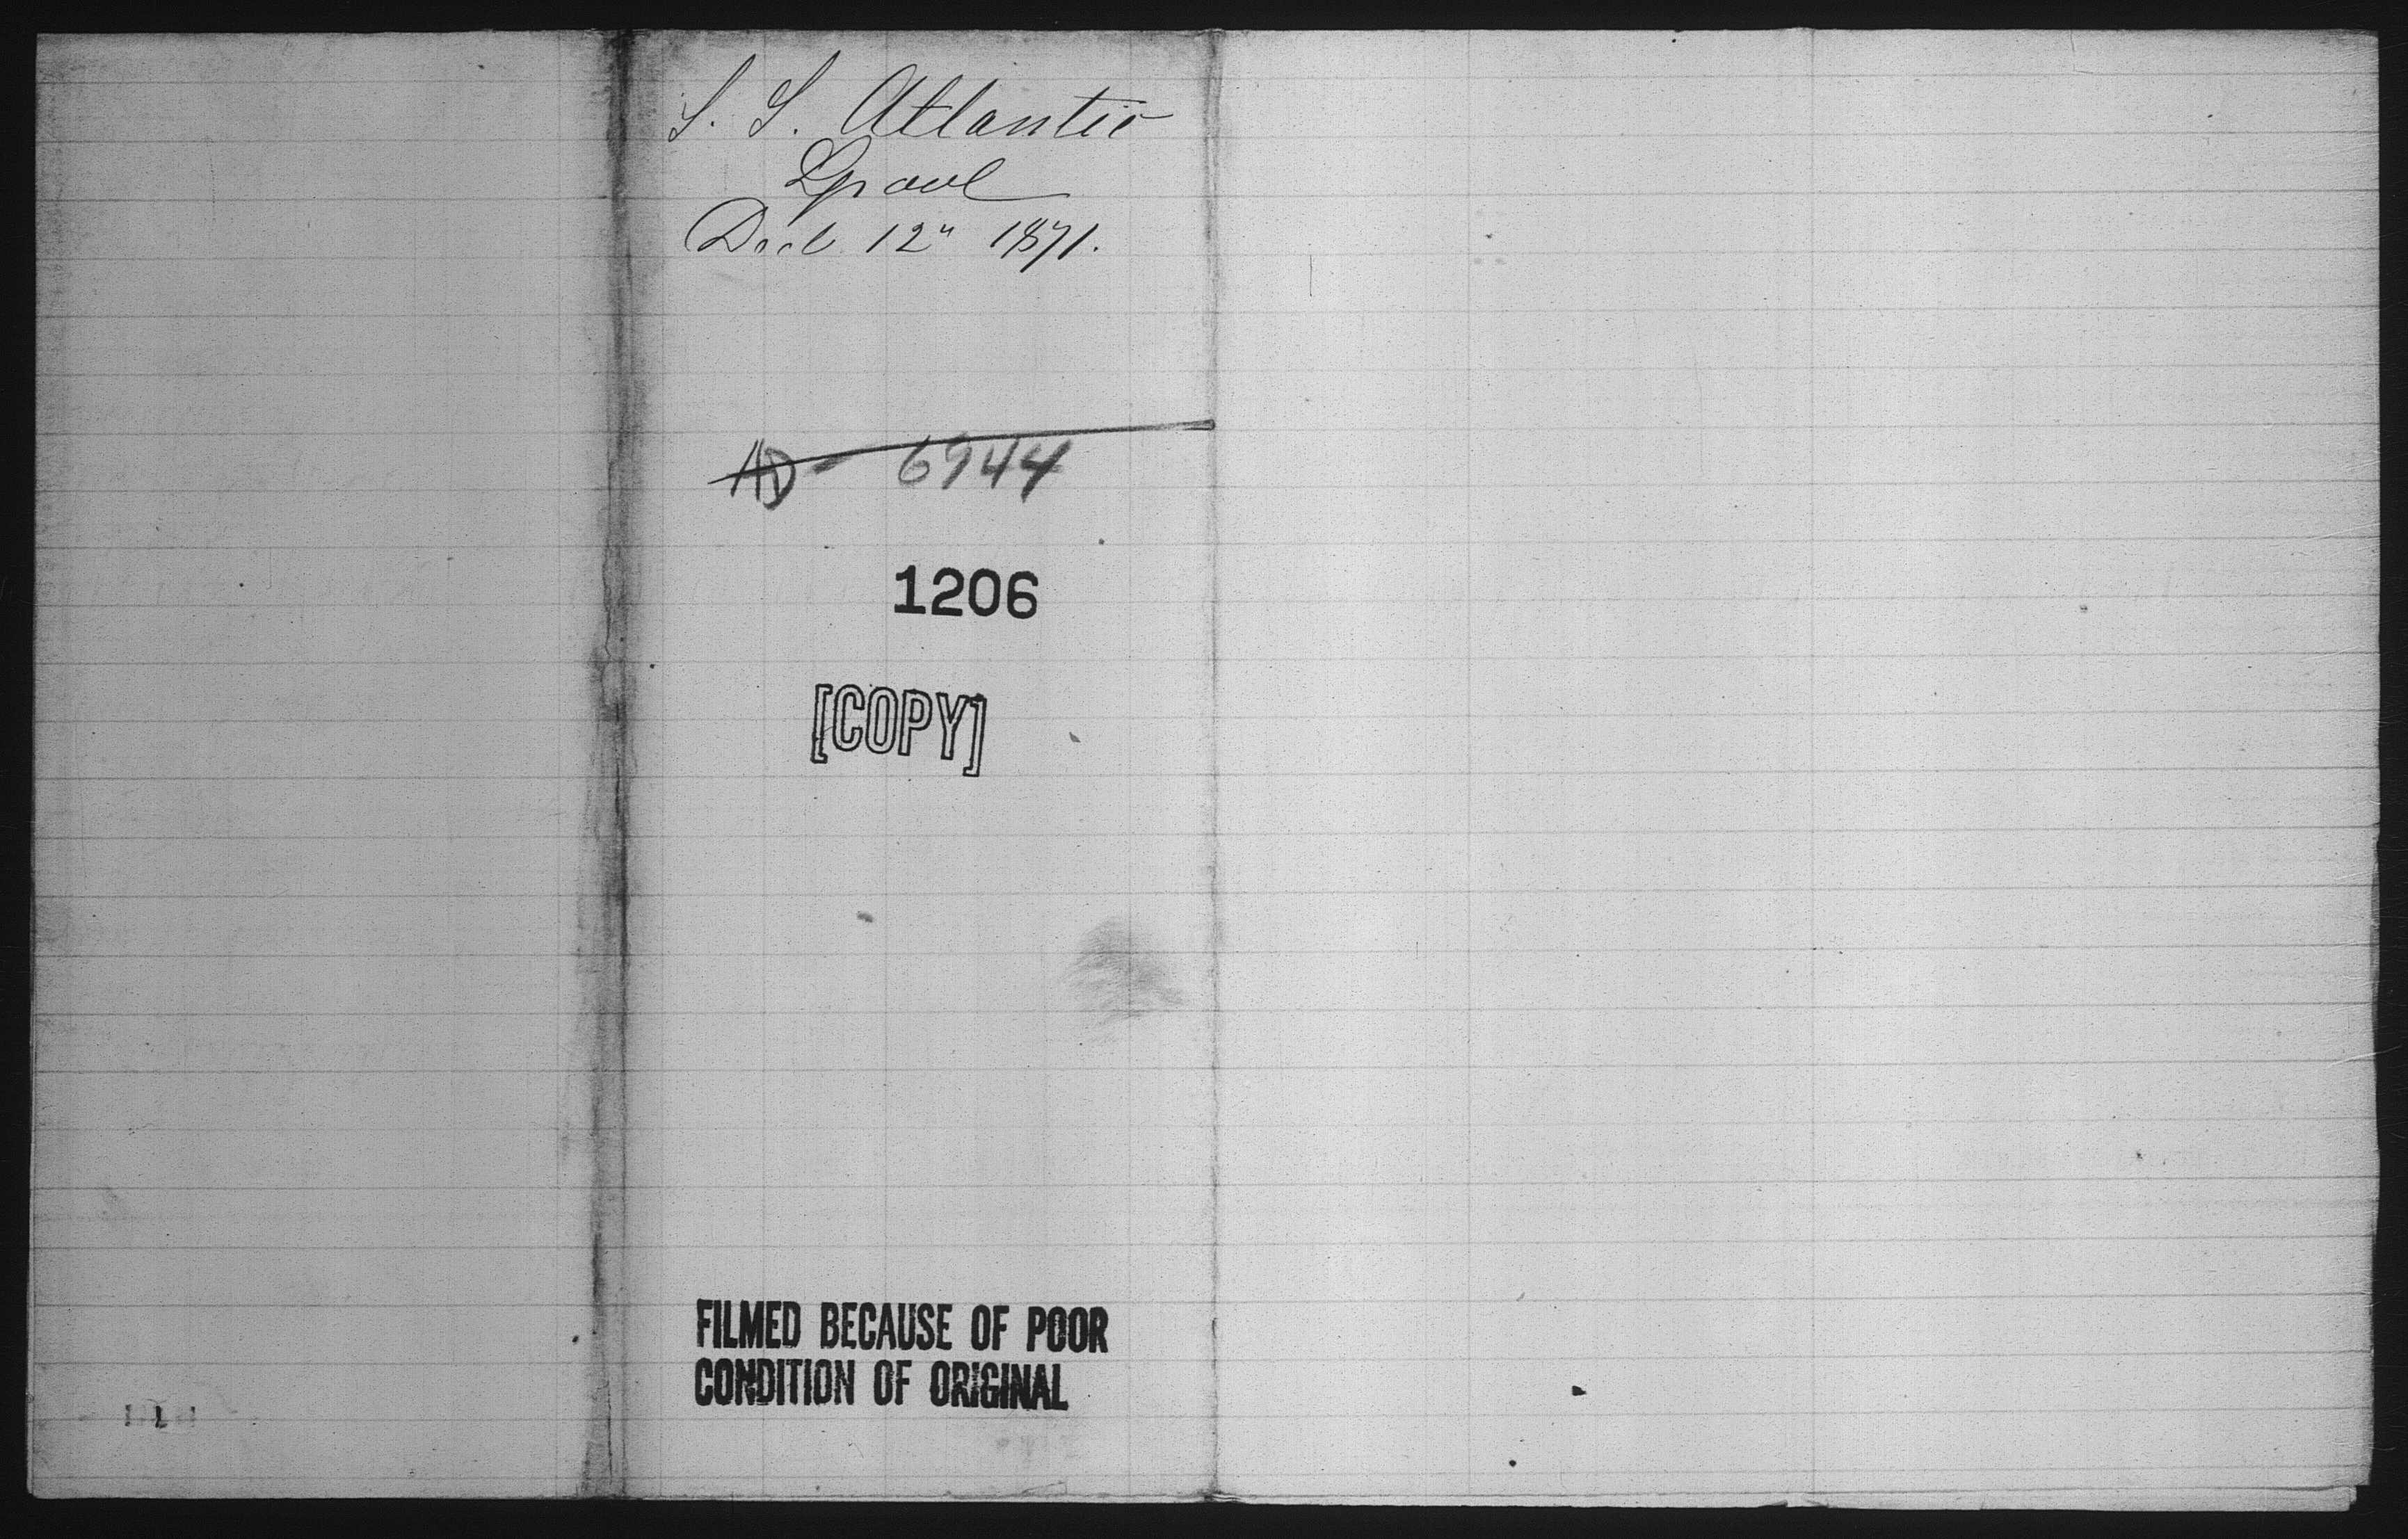 S. S. Atlantic
Lpool
Dec 12" 1871.
AD - 6944
1206
[COPY]
FILMED BECAUSE OF POOR
CONDITION OF ORIGINAL